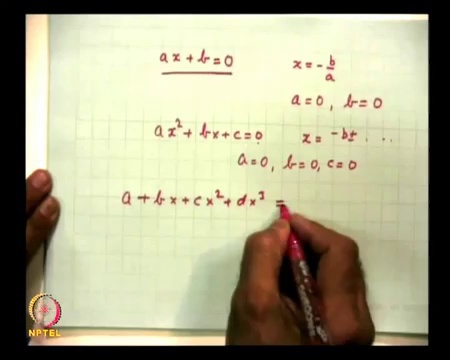 ax + b = 0 x = - b/a
a = 0, b = 0
ax² + bx + c = 0 x = -b± . . .
a = 0, b = 0, c = 0
a + bx + cx² + dx³ =
NPTEL